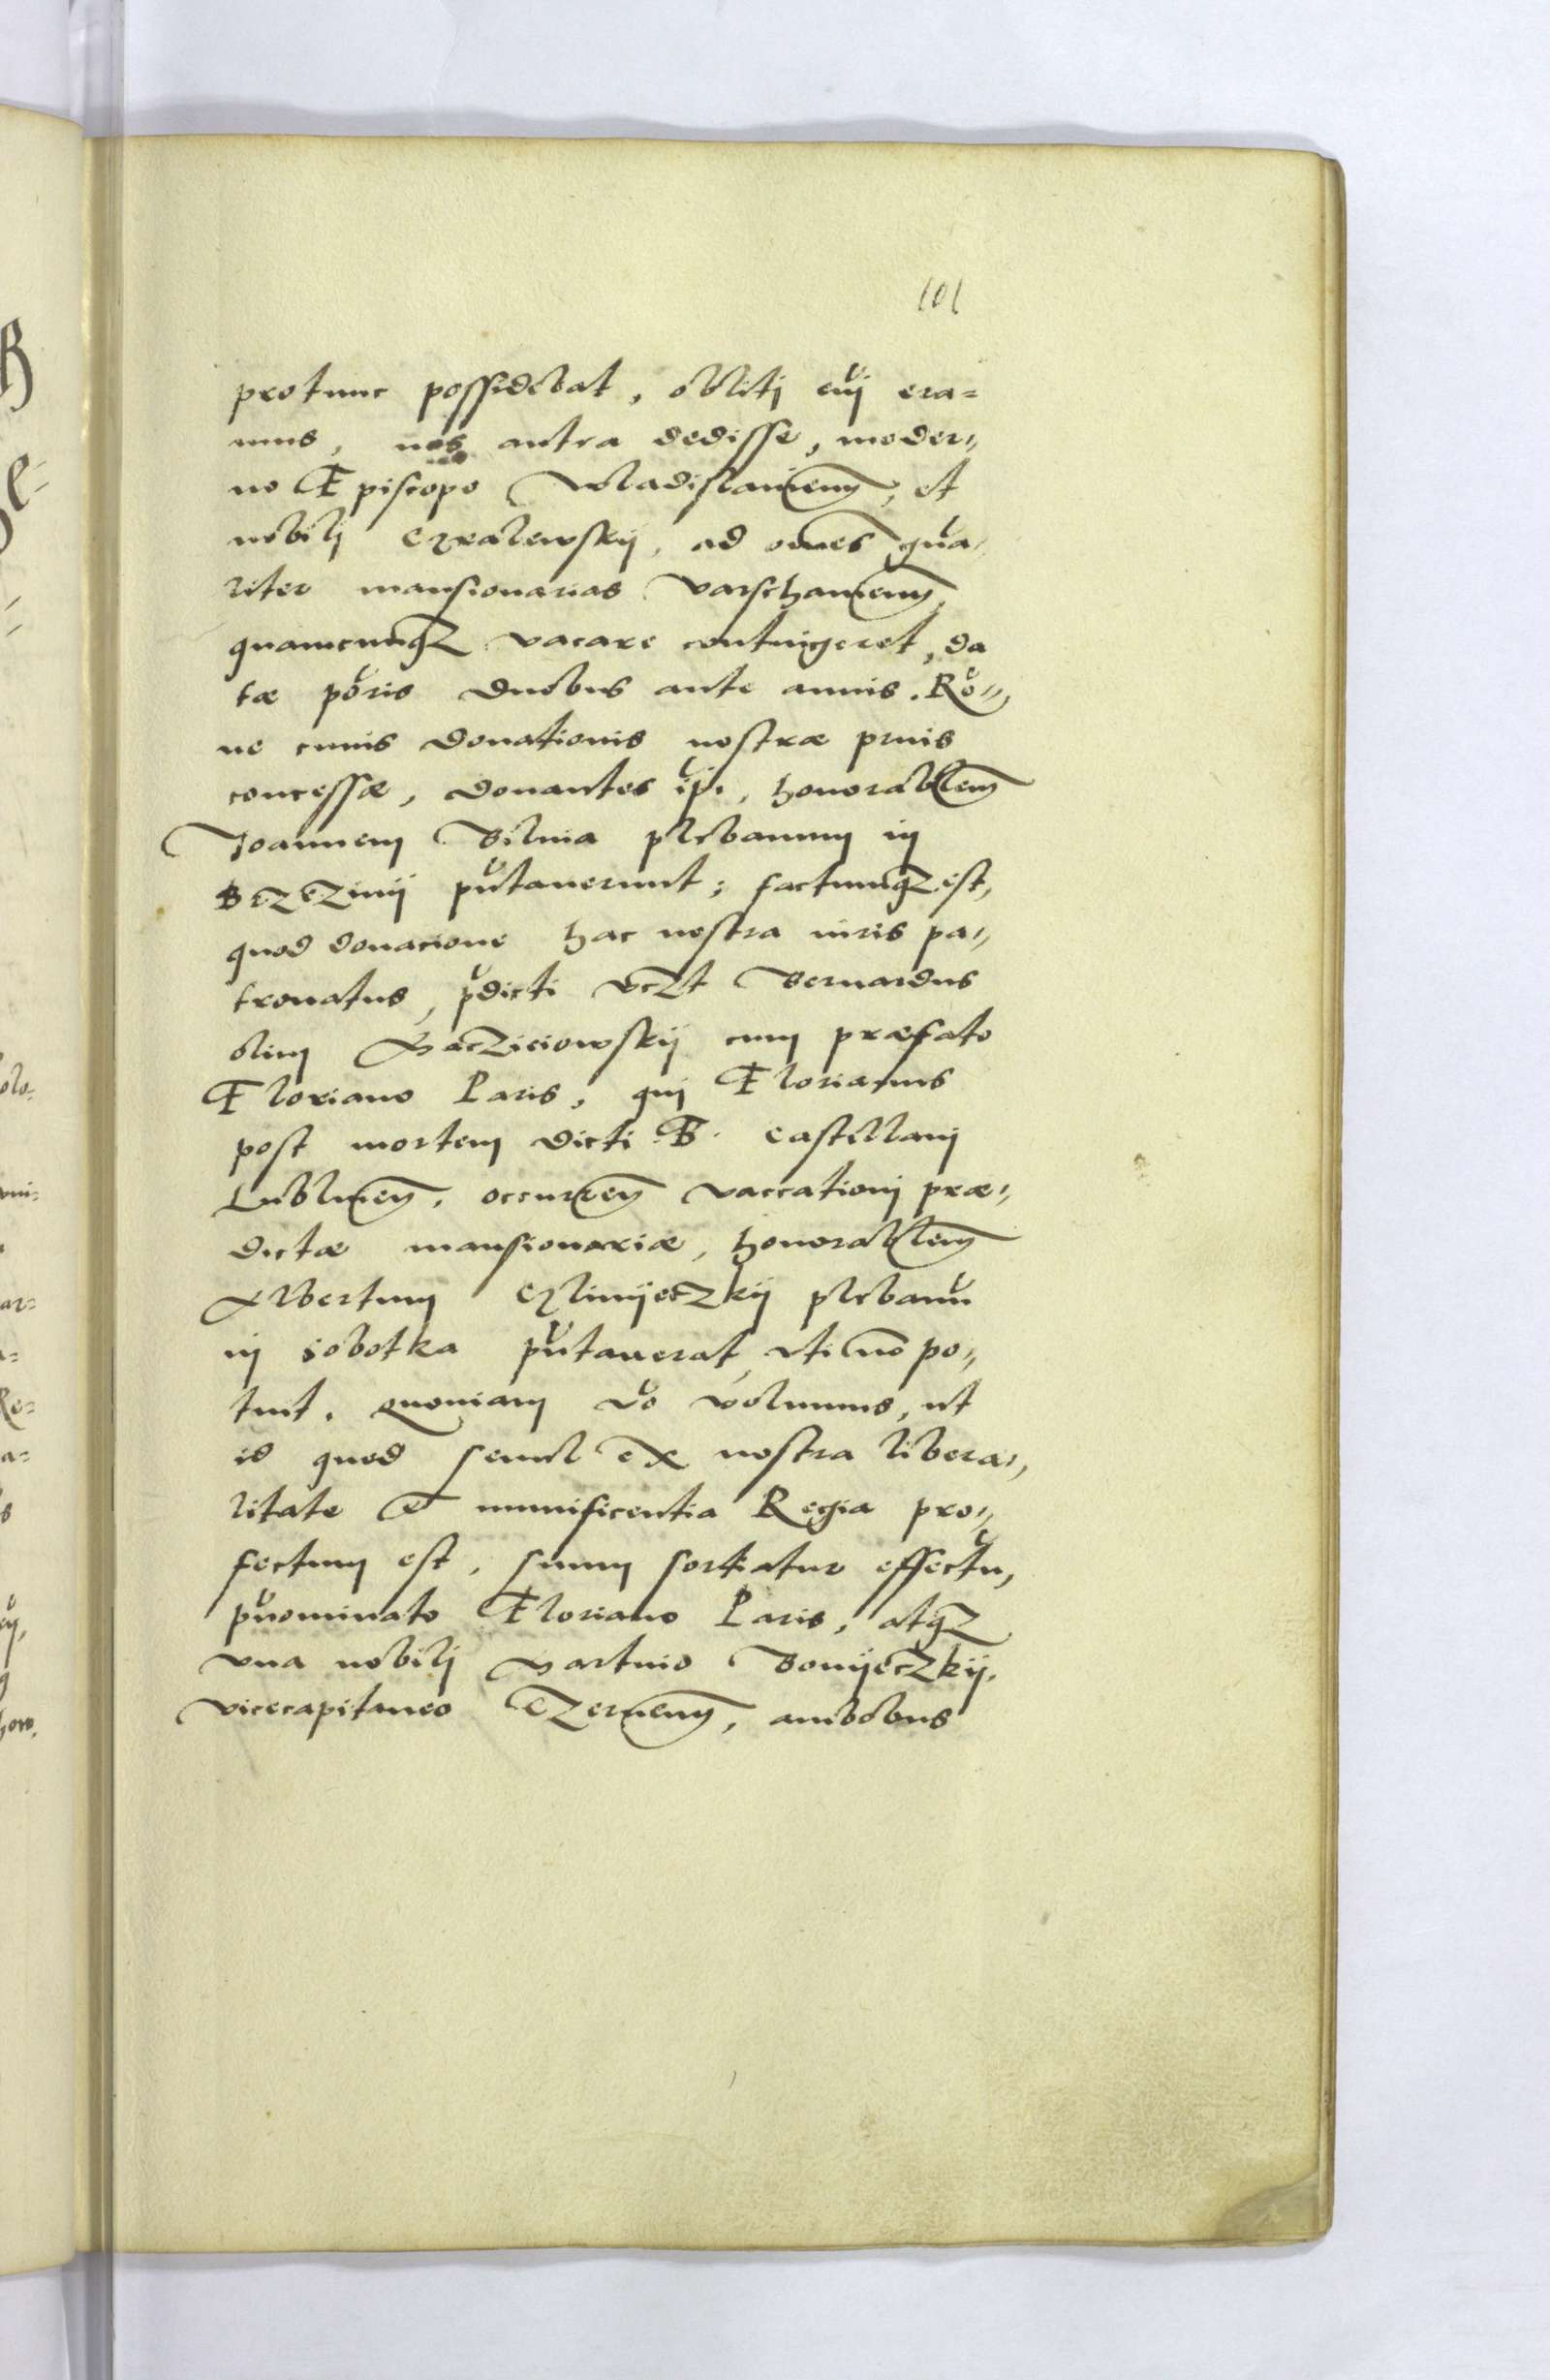 101
protunc possidebat, obliti cuj era=
mus, nos antea dedisse, moder,,
no Episcopo Wladislauien, et
nobilj Czralewskij, ad omes gna,
liter mansionarias Varschauien,
quamcunq3 vacare contingeret, da
tæ poris duobus ante annis. Ro,,
ne cuius donationis nostræ prius
concessæ, donantes ipi, honorablem
Joannem Bilina plebanum in
Brzezinij pntauerunt; factumq3 est,
quod donacione hac nostra iuris pa,,
tronatus, pdicti vczt Bernardus
olim Macziciowskij cum præfato
Floriano Paris, quj Florianus
post mortem dicti B. Castellanj
Lublinen, occurren vaccationj præ,,
dictæ mansionariæ, honorablem
Albertum Czlinijeczkij plebanu
in Sobotka pntauerat, vti no po,,
tuit. Quoniam vo volumus, ut
id quod semel ex nostra libera,,
litate & munificentia Regia pro,,
fectum est, suum sortiatur effectu,
pnominato Floriano Paris, atq3
vna nobilj Martino Bonijeczkij,
vicecapitaneo Czernen, ambobus